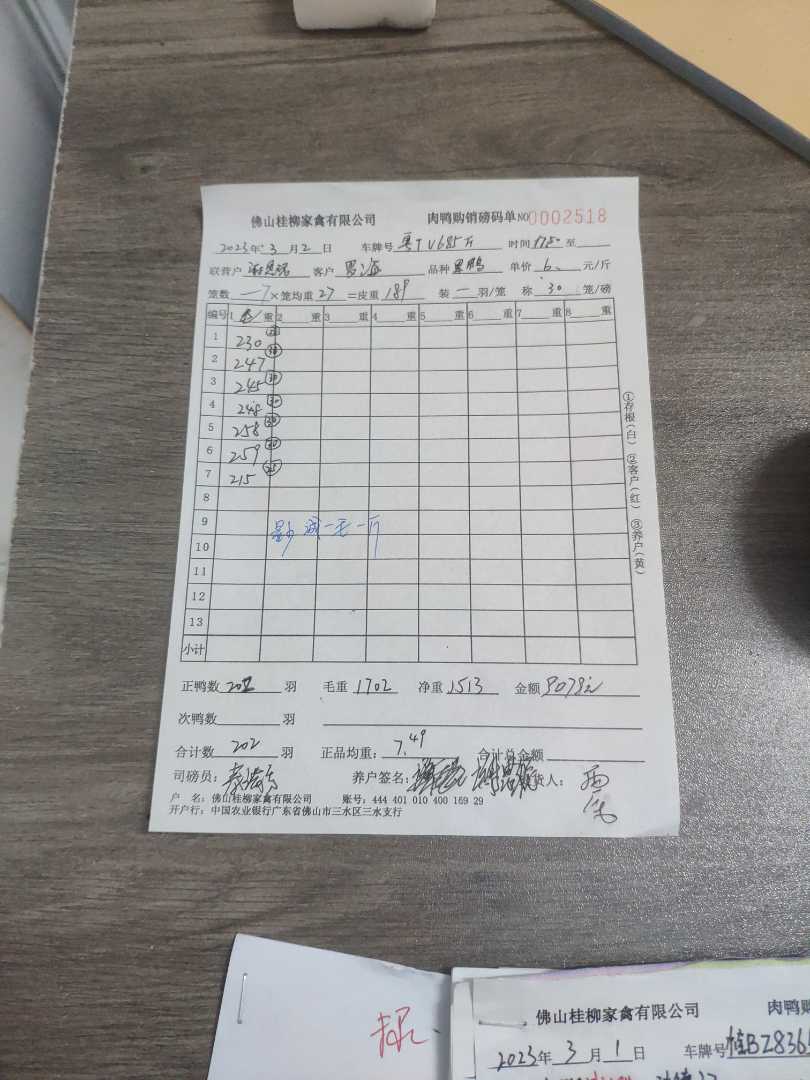 佛山桂柳家禽有限公司 肉鸭购销磅码单 NO 0002518
2023年 3 月 2 日 车牌号 粤TV685 时间 至
联营户 客户 罗海 品种 黑鸭 单价 6 元/斤
笼数 7 ×笼均重 27 =皮重 189 装 羽/笼 称 30 笼/磅
编号 1 重 2 重 3 重 4 重 5 重 6 重 7 重 8 重
1 230
2 247 30
3 245 30
4 248 30
5 258 30
6 259 30
7 215 25
8
9
10
减一毛一斤
11
12
13
小计
正鸭数 202 羽 毛重 1702 净重 1513 金额 9078元
次鸭数 羽
合计数 202 羽 正品均重: 7.49 合计总金额
司磅员: 养户签名: 货人:
户 名: 佛山桂柳家禽有限公司 账号: 444 401 010 400 169 29
开户行: 中国农业银行广东省佛山市三水区三水支行
①存根(白) ②客户(红) ③养户(黄)
佛山桂柳家禽有限公司 肉鸭购
2023年 3 月 1 日 车牌号 桂BZ8365